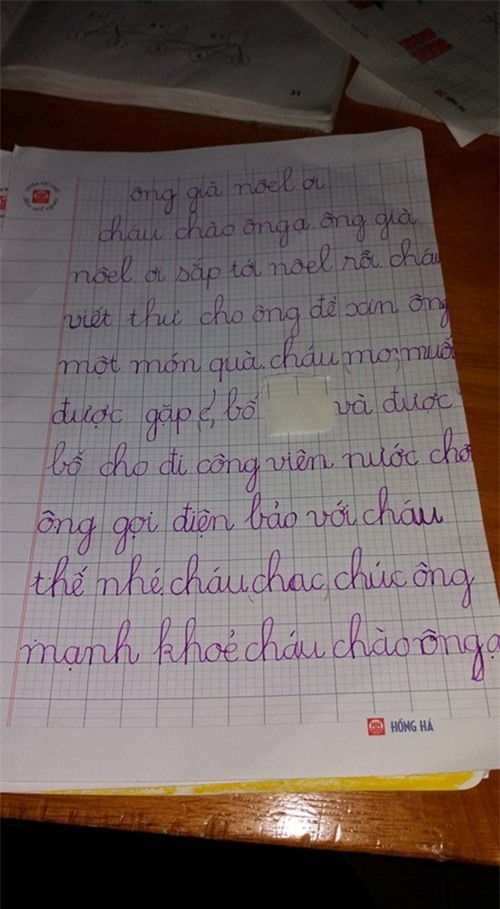 31
HỒNG HÀ
ông già nôel ơi
cháu chào ông ạ ông già
nôel ơi sắp tới nôel rồi cháu
viết thư cho ông để xin ông
một món quà. cháu mơ muố
được gặp bố và được
bố cho đi công viên nước chơi
ông gọi điện bảo với cháu
thế nhé, cháu chac, chúc ông
mạnh khoẻ cháu chào ông ạ
HỒNG HÀ